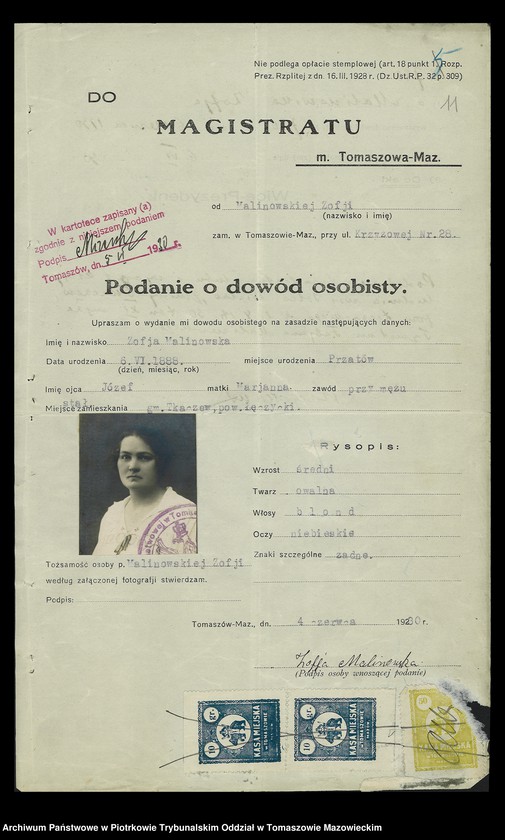 Nie podlega opłacie stemplowej (art. 18 punkt 1, Rozp.
Prez. Rzplitej z dn. 16. III. 1928 r. (Dz. Ust. R. P. 32 p. 309)
11
DO
MAGISTRATU
m. Tomaszowa-Maz.
od Malinowskiej Zofji
(nazwisko i imię)
zam. w Tomaszowie-Maz., przy ul. Krzyzowej Nr.28.
W kartotece zapisany (a)
zgodnie z niniejszem podaniem
Podpis
Tomaszów, dn. 5 VI 1930 r.
Podanie o dowód osobisty.
Upraszam o wydanie mi dowodu osobistego na zasadzie następujących danych:
Imię i nazwisko Zofja Malinowska
Data urodzenia 6.VI.1888. miejsce urodzenia Przatów
(dzień, miesiąc, rok)
Imię ojca Józef matki Marjanna zawód przy mężu
Miejsce stał. zamieszkania gm. Tka-zew, pow. łę-zy-ki.
Rysopis:
Wzrost średni
Twarz owalna
Włosy blond
Oczy niebieskie
Znaki szczególne żadne.
Tożsamość osoby p. Malinowskiej Zofji
według załączonej fotografji stwierdzam.
Podpis:
Tomaszów-Maz., dn. 4 -zerw-a 1930 r.
Zofja Malinowska
(Podpis osoby wnoszącej podanie)
10 gr. KASA MIEJSKA W TOMASZOWIE MAZOW.
10 gr. KASA MIEJSKA W TOMASZOWIE MAZOW.
50
Archiwum Państwowe w Piotrkowie Trybunalskim Oddział w Tomaszowie Mazowieckim